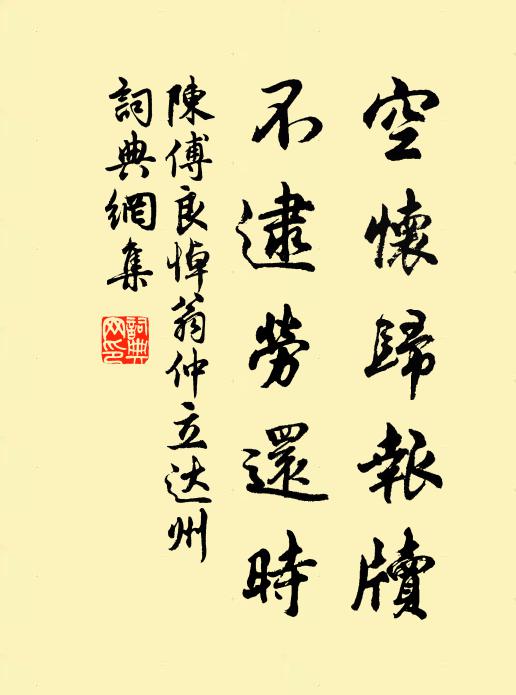 空懷歸報牘
不逮勞還時
陳傅良悼翁仲立达州
詞典網集
詞典网印